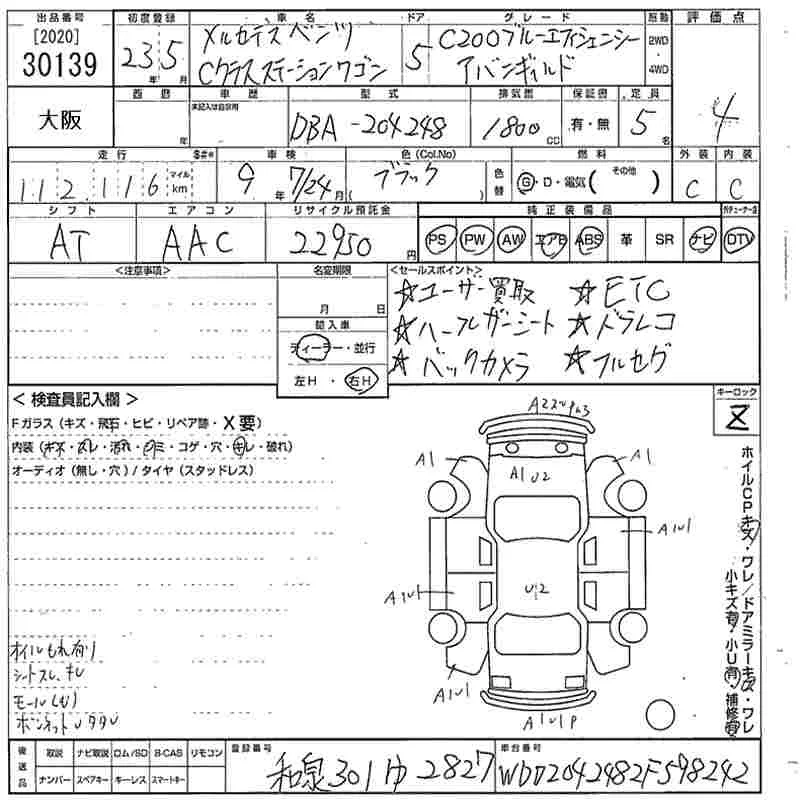 出品番号 初度登録 車名 ドア グレード 原動 評価点
[2020]
30139
23年 5月
メルセデスベンツ
Cクラスステーションワゴン
5
C200ブルーエフィシェンシー
アバンギャルド
2WD
4WD
4
大阪
西暦 車歴 型式 排気量 保証書 定員
年 未記入は自家用 DBA-204248 1800 CC 有・無 5名
走行 $#* 車検 色(Col.No) 色替 燃料 外装 内装
112,116 マイル km 9年 7/24月 ブラック ( ) G・D・電気( その他 ) C C
シフト エアコン リサイクル預託金 純正装備品
AT AAC 22950円 PS PW AW エアB ABS 革 SR ナビ DTV
<注意事項> 名変期限 <セールスポイント>
月 日
☆ユーザー買取 ☆ETC
☆ハーフレザーシート ☆ドラレコ
☆バックカメラ ☆フルセグ
輸入車
ディーラー・並行
左H・右H
< 検査員記入欄 >
Fガラス(キズ・飛石・ヒビ・リペア跡・X要)
内装(キズ・スレ・汚れ・シミ・コゲ・穴・キレ・破れ)
オーディオ(無し・穴)/タイヤ(スタッドレス)
キーロック
A1 A1
A1 U2
A1U1
U2
A1U1
A1U1
A1U1P
ホイルCPキズ・ワレ/ドアミラーキズ・ワレ
小キズ有・小U有・補修有
オイルもれ有り
シートスレ、キレ
後送品 取説 ナビ取説 ロム/SD B-CAS リモコン 登録番号 車台番号
ナンバー スペアキー キーレス スマートキー
和泉301ゆ2827 WDD2042482F598242